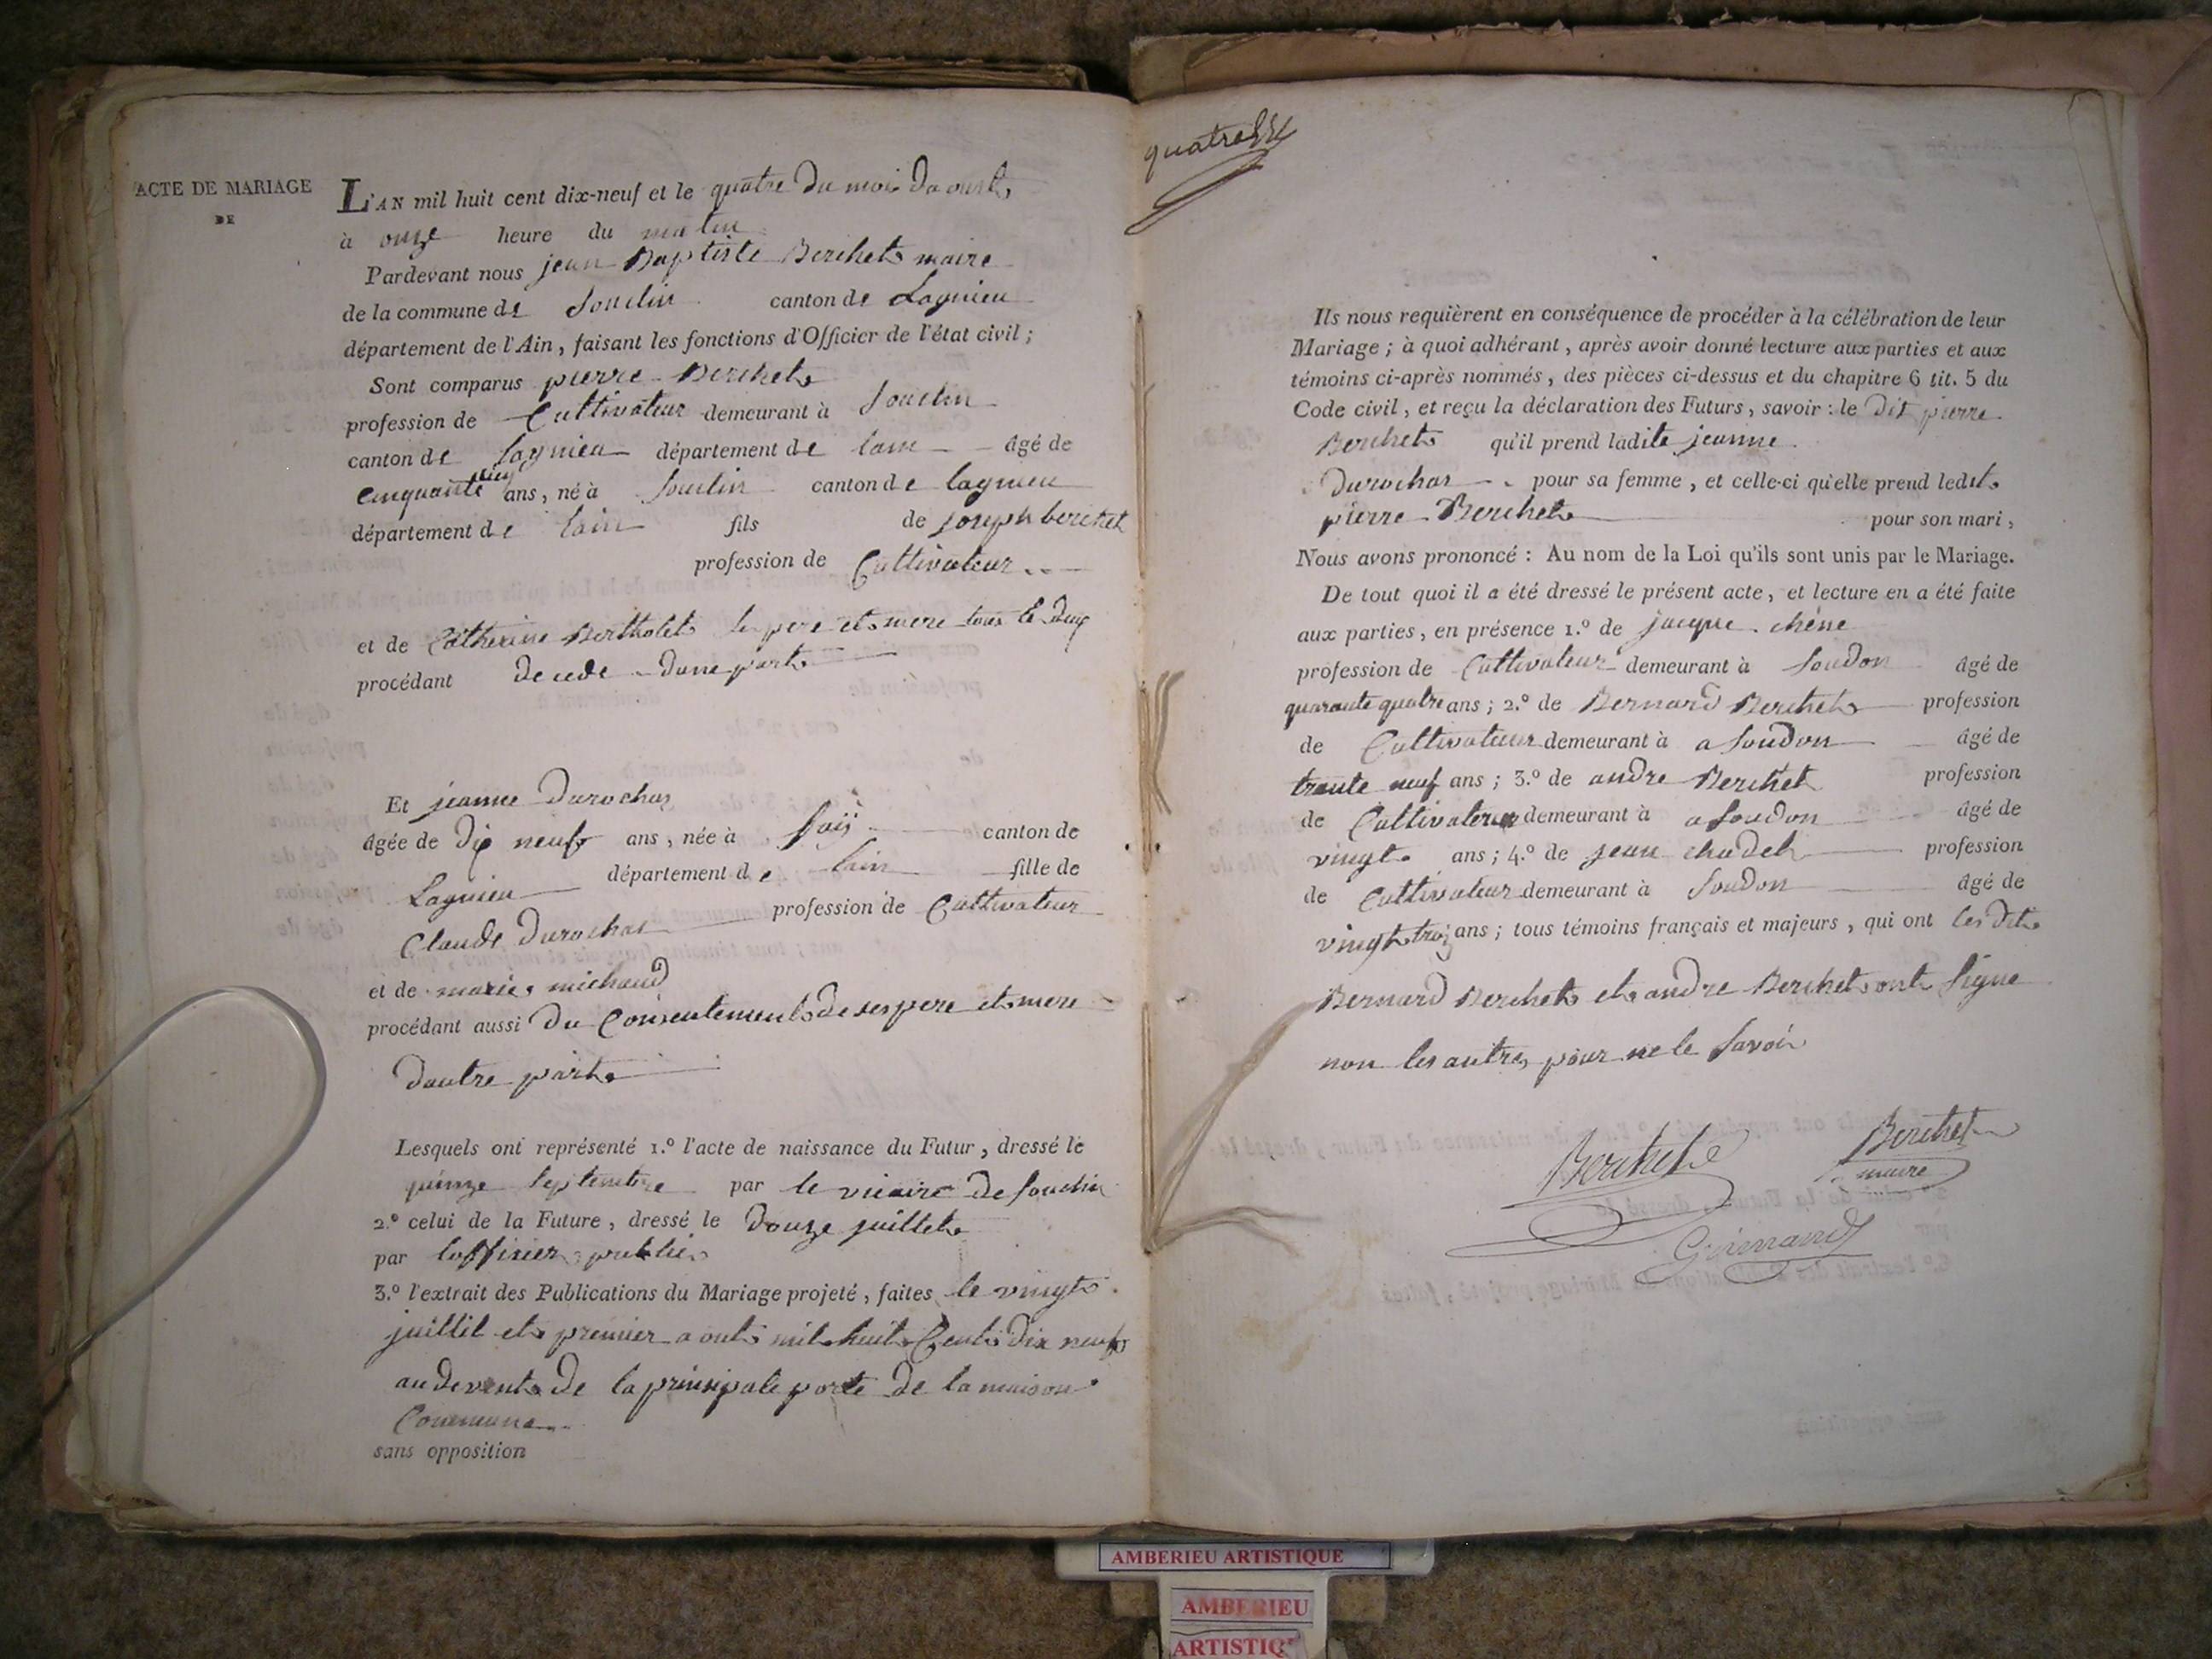 ACTE DE MARIAGE
DE
L'AN mil huit cent dix-neuf et le quatre du mois daoust
à onze heure du matin
Pardevant nous jean Baptiste Berchet maire
de la commune de Souclin canton de Lagnieu
département de l'Ain, faisant les fonctions d'Officier de l'état civil;
Sont comparus pierre Berchet
profession de Cultivateur demeurant à Souclin
canton de Lagnieu département de lain âgé de
Cinquante ans, né à Souclin canton de lagnieu
département de lain fils de joseph berchet
profession de Cultivateur
et de Catherine Bertholet le pere et mere tous le deux
procédant decede dune part
Et jeanne Durochas
âgée de dix neuf ans, née à canton de
Lagnieu département de lain fille de
Claude Durochas profession de Cultivateur
et de marie michaud
procédant aussi du Consentement de ses pere et mere
dautre part
Lesquels ont représenté 1.º l'acte de naissance du Futur, dressé le
quinze Septembre par le vicaire de Souclin
2.º celui de la Future, dressé le douze juillet
par lofficier public
3.º l'extrait des Publications du Mariage projeté, faites le vingt
juillet et premier aout mil huit Cent dix neuf
au devent de la principale porte de la maison
Commune
sans opposition
quatre
Ils nous requièrent en conséquence de procéder à la célébration de leur
Mariage; à quoi adhérant, après avoir donné lecture aux parties et aux
témoins ci-après nommés, des pièces ci-dessus et du chapitre 6 tit. 5 du
Code civil, et reçu la déclaration des Futurs, savoir: le dit pierre
Berchet qu'il prend ladite jeanne
Durochas pour sa femme, et celle-ci qu'elle prend ledit
pierre Berchet pour son mari,
Nous avons prononcé: Au nom de la Loi qu'ils sont unis par le Mariage.
De tout quoi il a été dressé le présent acte, et lecture en a été faite
aux parties, en présence 1.º de jacque chêne
profession de Cultivateur demeurant à Soudon âgé de
quarante quatre ans; 2.º de Bernard Berchet profession
de Cultivateur demeurant à a Soudon âgé de
trante neuf ans; 3.º de andre Berchet profession
de Cultivateur demeurant à a Soudon âgé de
vingt ans; 4.º de jean chudet profession
de Cultivateur demeurant à Soudon âgé de
vingt troi ans; tous témoins français et majeurs, qui ont les dit
Bernard Berchet et andre Berchet ont Signe
non les autres pour ne le Savoir
Berchet
Berchet
maire
AMBERIEU ARTISTIQUE
AMBERIEU
ARTISTIQ